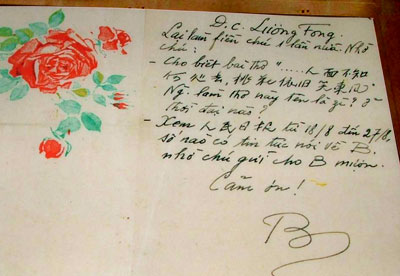 Đ.c. Lương Fong.
Lại làm fiền chú 1 lần nữa. Nhờ
chú:
- Cho biết bài thơ "......人面不知
何処去,桃花依旧笑東风"
Ng. làm thơ này tên là gì? ở
Thời đại nào?
- Xem 人民日报 từ 18/8 đến 27/8,
số nào có tin tức nói về B.
nhờ chú gửi cho B mượn.
Cảm ơn!
B